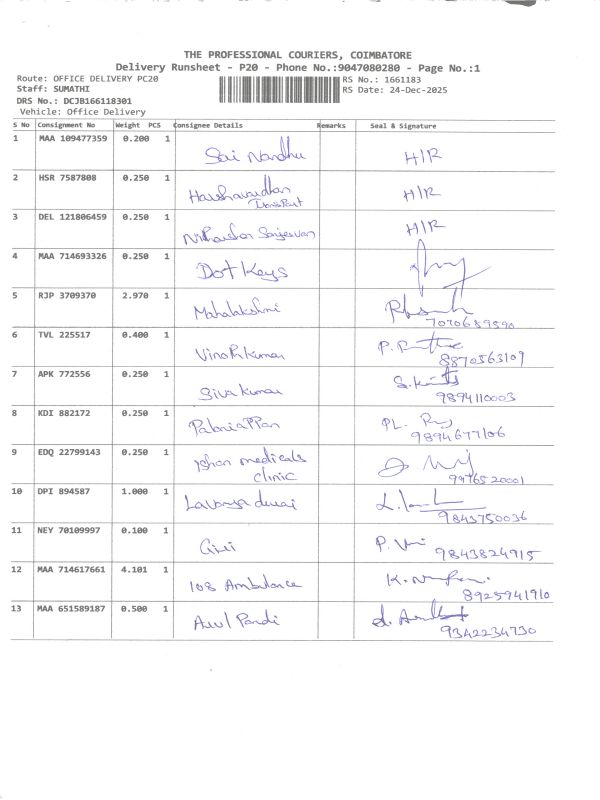 THE PROFESSIONAL COURIERS, COIMBATORE
Delivery Runsheet - P20 - Phone No.:9047080280 - Page No.:1
Route: OFFICE DELIVERY PC20 RS No.: 1661183
Staff: SUMATHI RS Date: 24-Dec-2025
DRS No.: DCJB166118301
Vehicle: Office Delivery
S No Consignment No Weight PCS Consignee Details Remarks Seal & Signature
1 MAA 109477359 0.200 1 Sai Nandhu H/R
2 HSR 7587808 0.250 1 Harshavardhan H/R
Transport
3 DEL 121806459 0.250 1 Sanjeevan H/R
4 MAA 714693326 0.250 1 Dot Keys
5 RJP 3709370 2.970 1 Mahalakshmi
7070689590
6 TVL 225517 0.400 1 Vinoth Kumar
8870563109
7 APK 772556 0.250 1 Siva Kumar
9894110003
8 KDI 882172 0.250 1 PalaniaPPan PL.
9894677106
9 EDQ 22799143 0.250 1 Ishan medicals
clinic 9976520001
10 DPI 894587 1.000 1 Lavanya durai
9843750036
11 NEY 70109997 0.100 1 Giri 9843824915
12 MAA 714617661 4.101 1 108 Ambulance
8925941910
13 MAA 651589187 0.500 1 Arul Pandi
9342234730